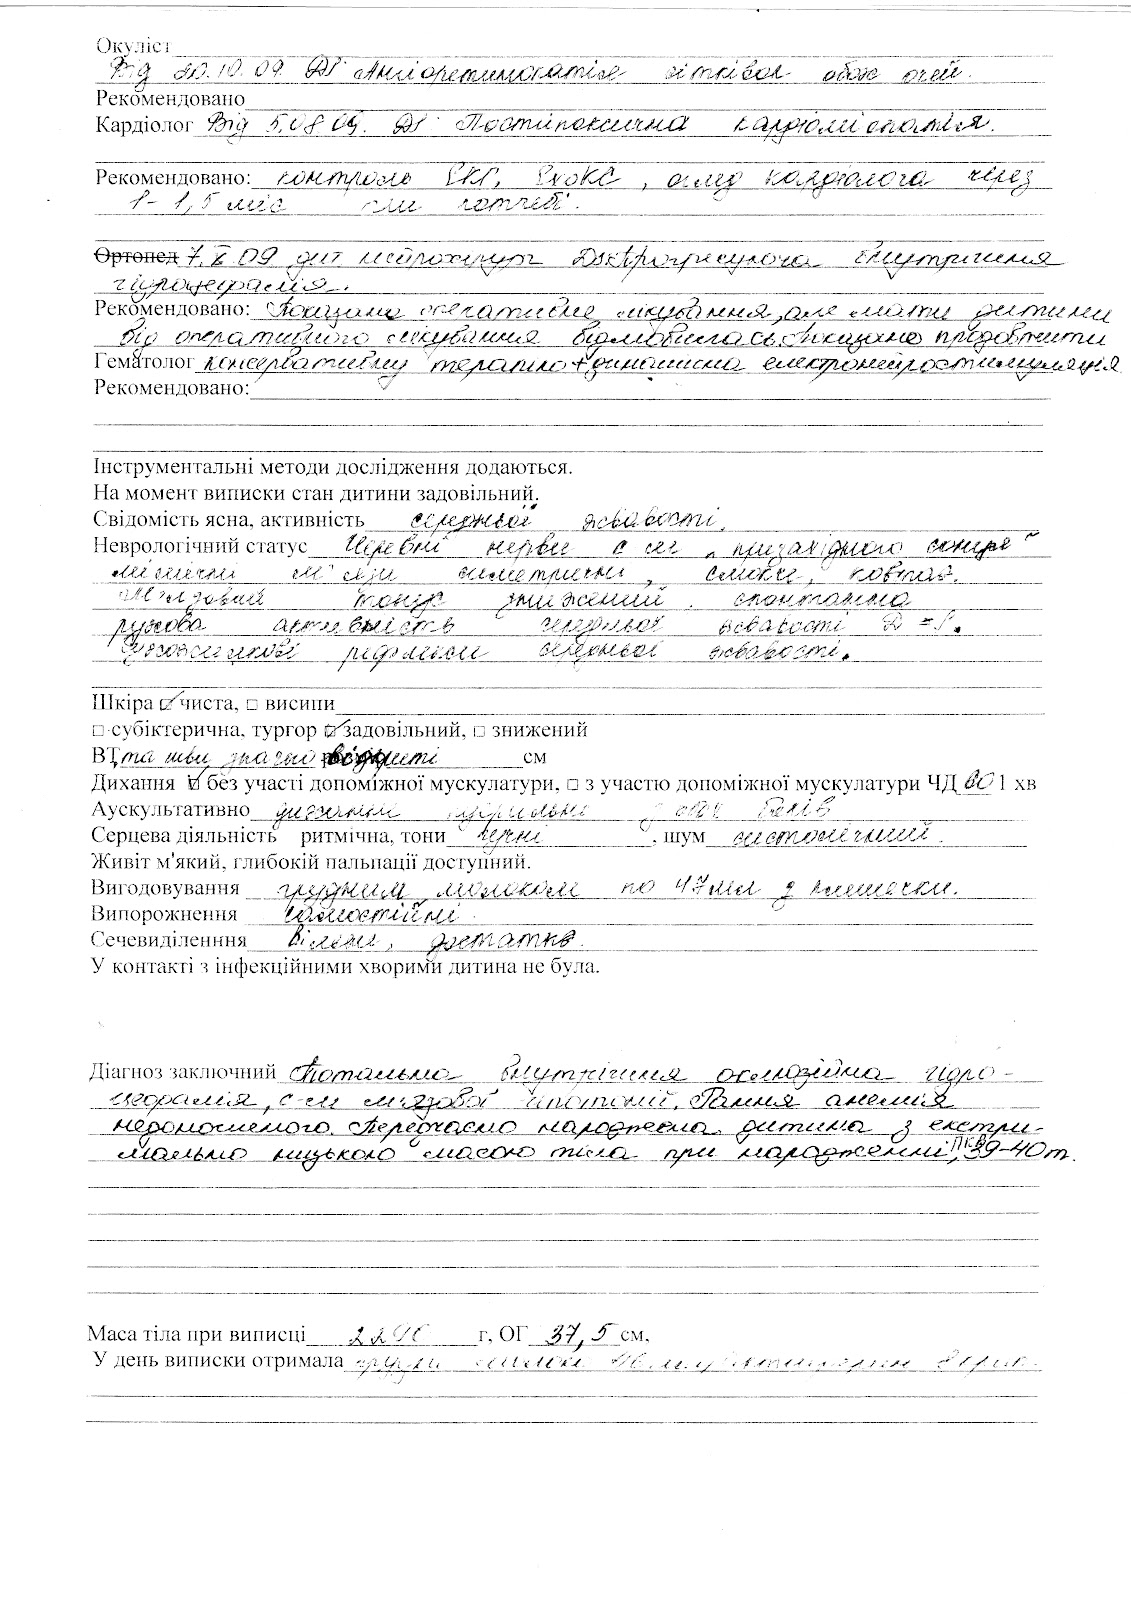 Окуліст
Від 20.10.09. Ds: Ангіоретинопатія сітківок обох очей.
Рекомендовано
Кардіолог Від 5.08.09. Ds: Постгіпоксична кардіоміопатія.
Рекомендовано: контроль ЕКГ, ЕхоКС, огляд кардіолога через
1-1,5 міс при потребі.
Ортопед 7.X.09 дит. нейрохірург Ds: Прогресуюча внутрішня
гідроцефалія.
Рекомендовано: Показано оперативне лікування, але мати дитини
від оперативного лікування відмовилась. Показано продовжити
Гематолог консервативну терапію + динамічна електронейростимуляція
Рекомендовано:
Інструментальні методи дослідження додаються.
На момент виписки стан дитини задовільний.
Свідомість ясна, активність середньої жвавості.
Неврологічний статус Черевні нерви с-м „призахідного сонця"
мімічні м'язи симетричні, смокче, ковтає.
М'язовий тонус знижений. спонтанна
рухова активність середньої жвавості D=S.
Сухожилкові рефлекси середньої жвавості.
Шкіра ☑ чиста, □ висипи
□ субіктерична, тургор ☑ задовільний, □ знижений
ВТ та шви значно відкриті см
Дихання ☑ без участі допоміжної мускулатури, □ з участю допоміжної мускулатури ЧД 1 хв
Аускультативно дихання боків
Серцева діяльність ритмічна, тони гучні, шум систолічний.
Живіт м'який, глибокій пальпації доступний.
Вигодовування грудним молоком по 47 мл з пляшечки.
Випорожнення самостійні.
Сечевиділенння вільне, достатнє.
У контакті з інфекційними хворими дитина не була.
Діагноз заключний Тотальна внутрішня оклюзійна гідро-
цефалія, с-м м'язової гіпотонії. Рання анемія
недоношеного. Передчасно народжена дитина з екстри-
мально низькою масою тіла при народженні, ПКВ 39-40 т.
Маса тіла при виписці г, ОГ 37,5 см.
У день виписки отримала грудне молоко